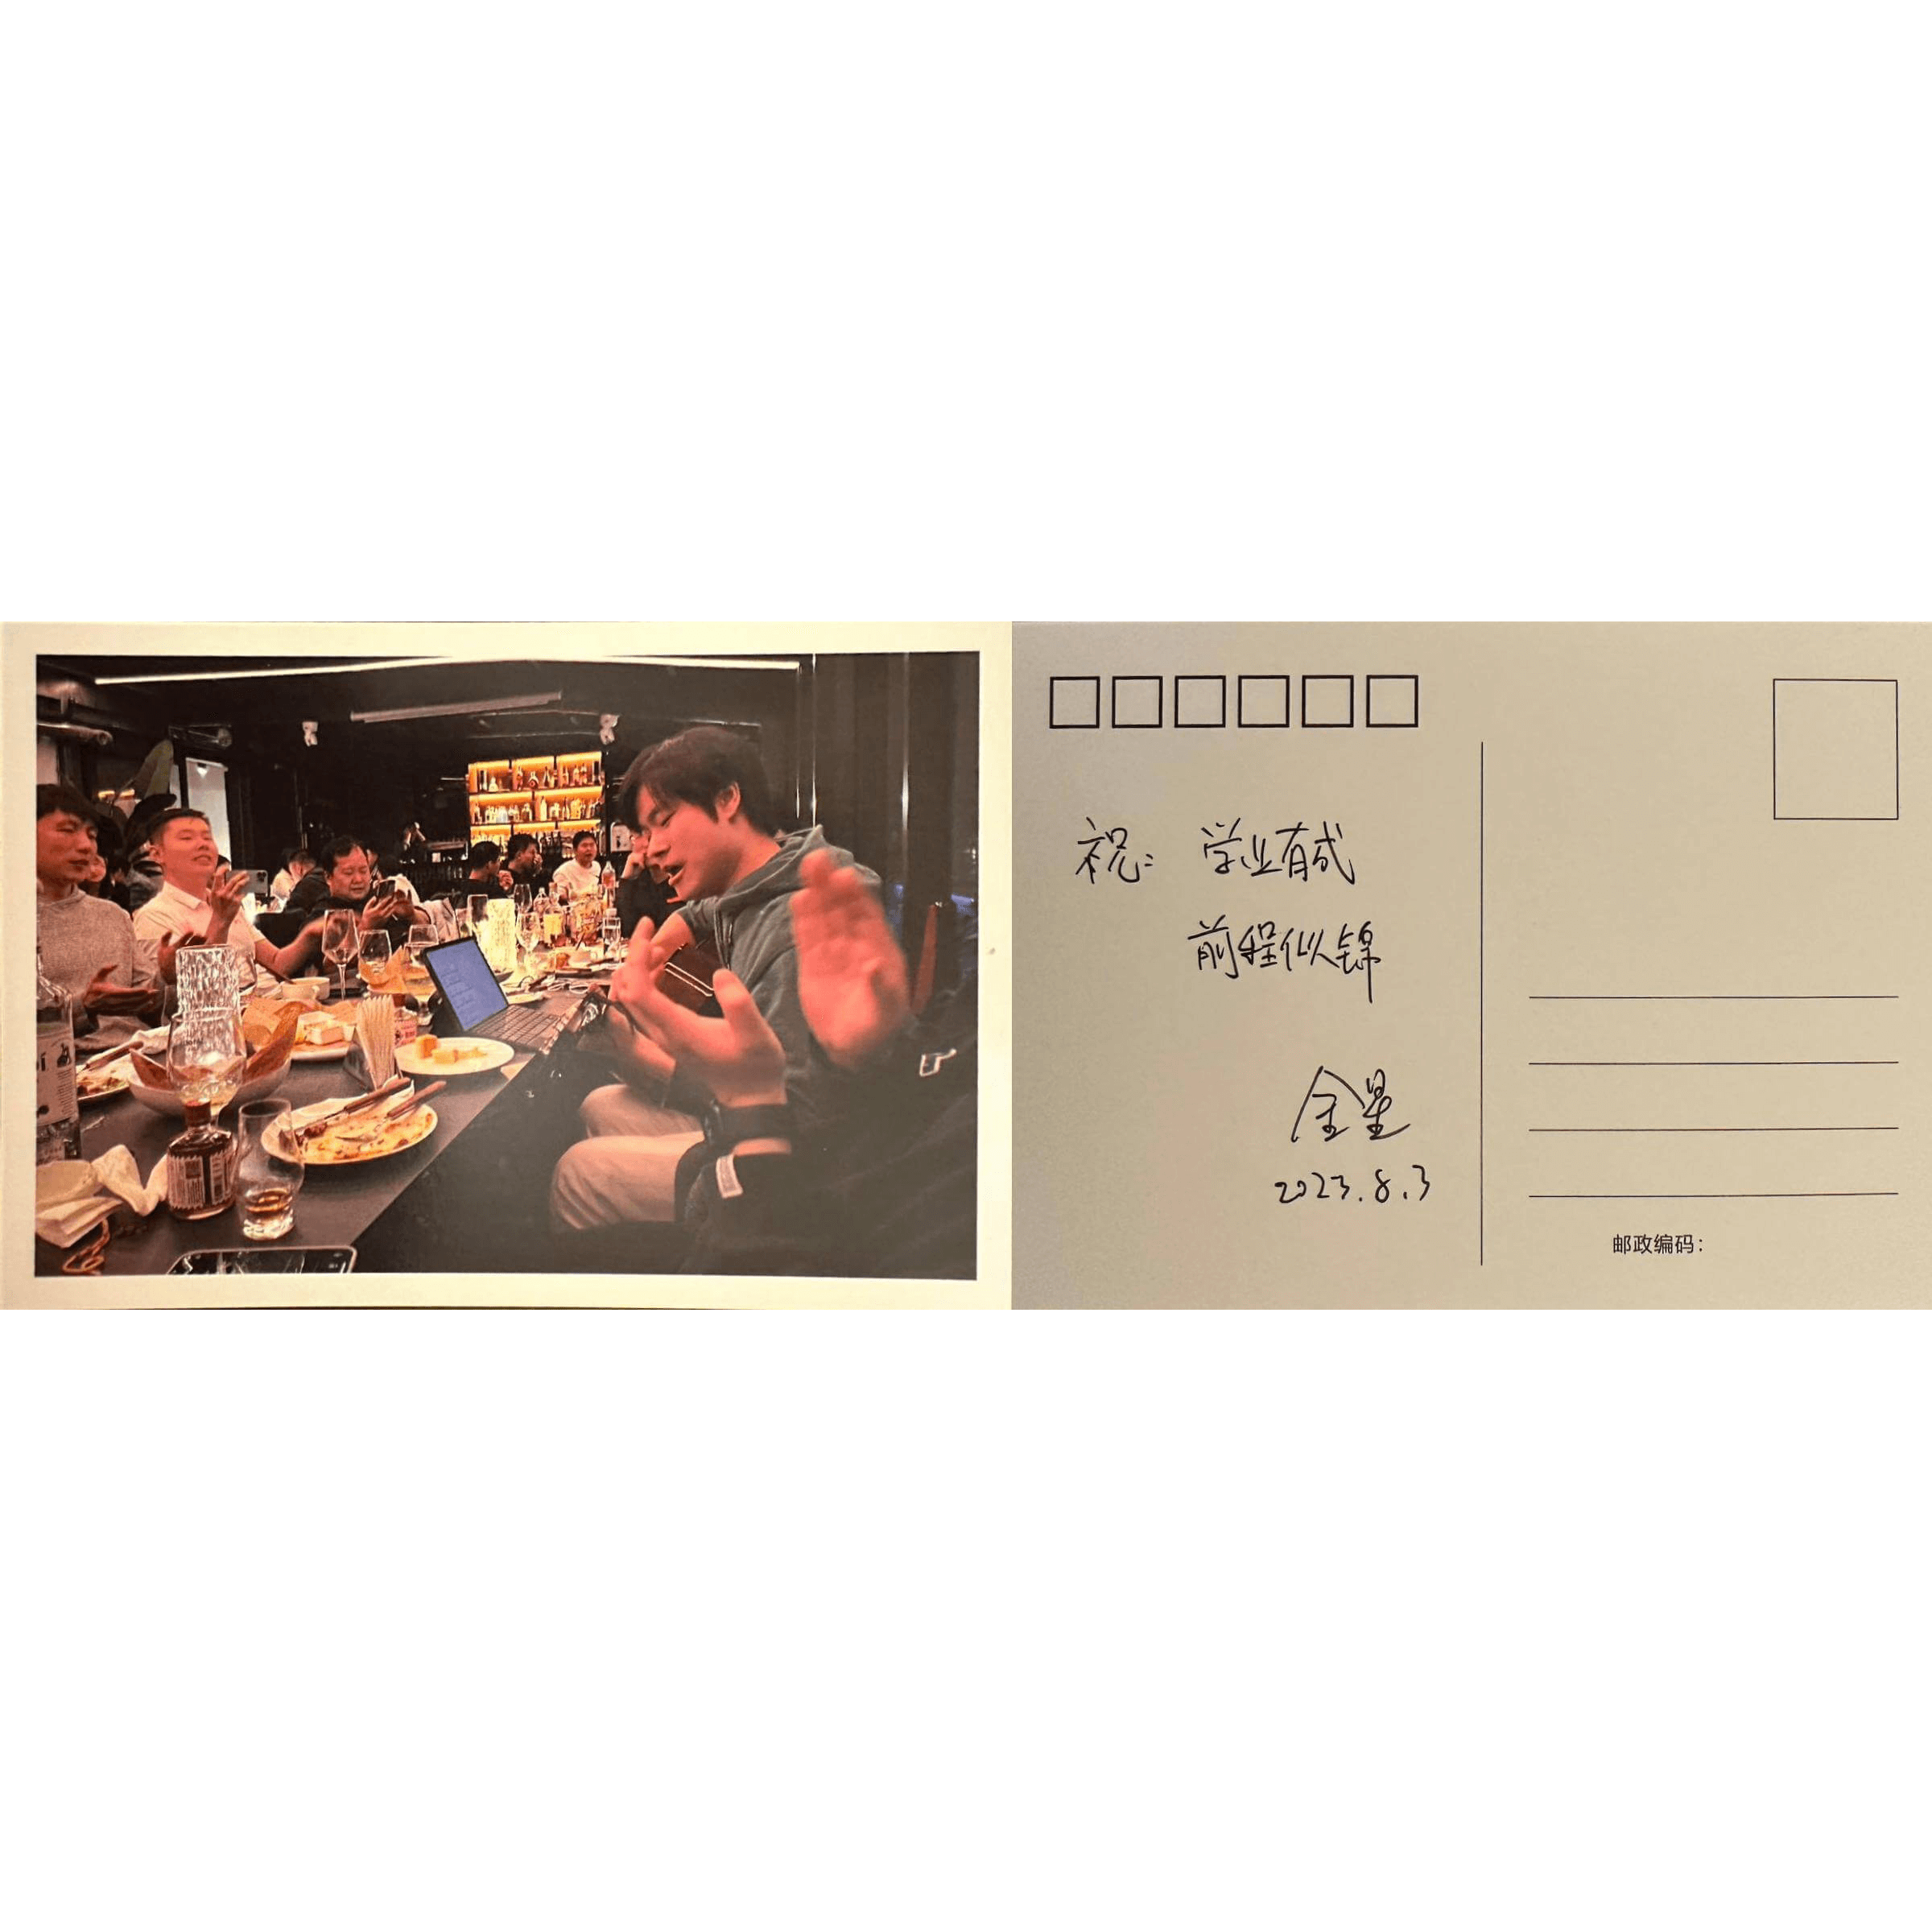 祝: 学业有成
前程似锦
金星
2023.8.3
邮政编码: